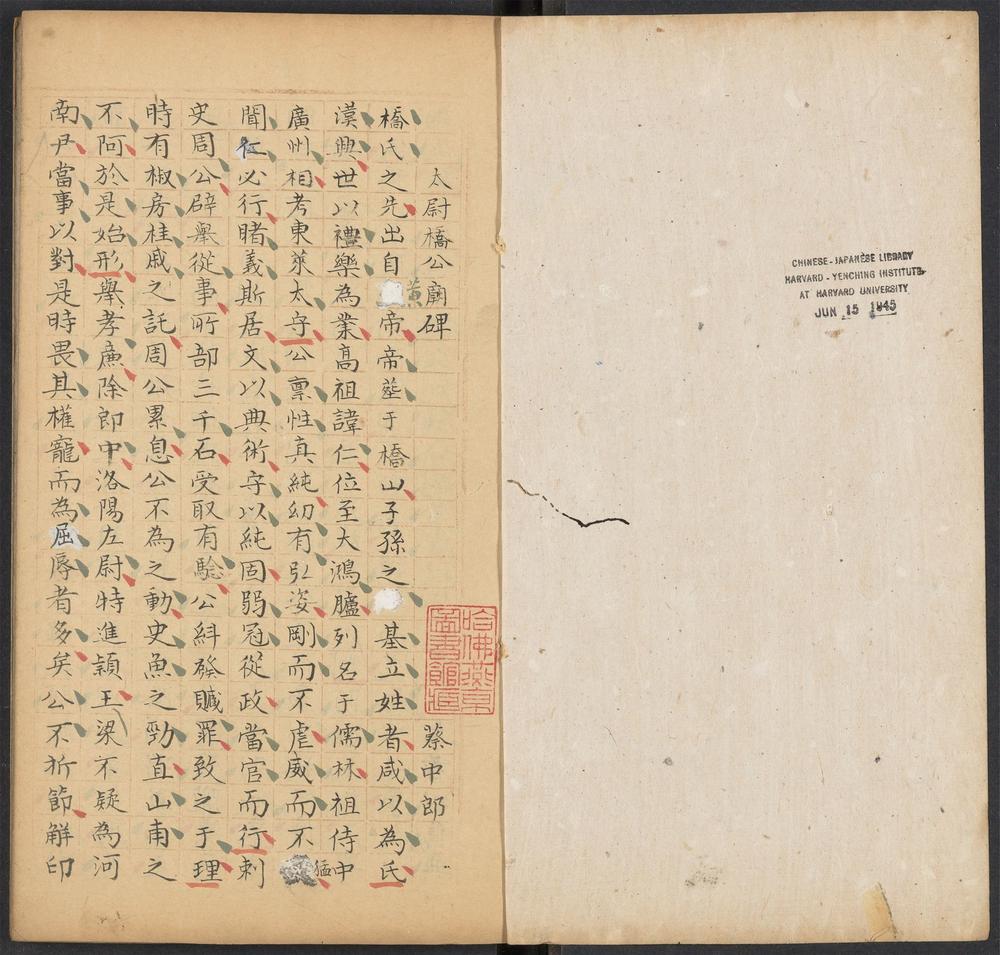 太尉橋公廟碑 蔡中郎
橋氏之先出自黃帝帝葬于橋山子孫之基立姓者咸以為氏
漢興世以禮樂為業高祖諱仁位至大鴻臚列名于儒林祖侍中
廣州相考東萊太守公禀性真純幼有弘姿剛而不虐威而不猛
聞仁必行睹義斯居文以典術守以純固弱冠從政當官而行刺
史周公辟舉從事所部三千石受取有驗公糾發贓罪致之于理
時有椒房桂戚之託周公累息公不為之動史魚之勁直山甫之
不阿於是始形舉孝廉除即中洛陽左尉特進穎王梁不疑為河
南尹當事以對是時畏其權寵而為屈辱者多矣公不折節解印
哈佛燕京
圖書館藏
CHINESE-JAPANESE LIBRARY
HARVARD-YENCHING INSTITUTE
AT HARVARD UNIVERSITY
JUN 15 1945